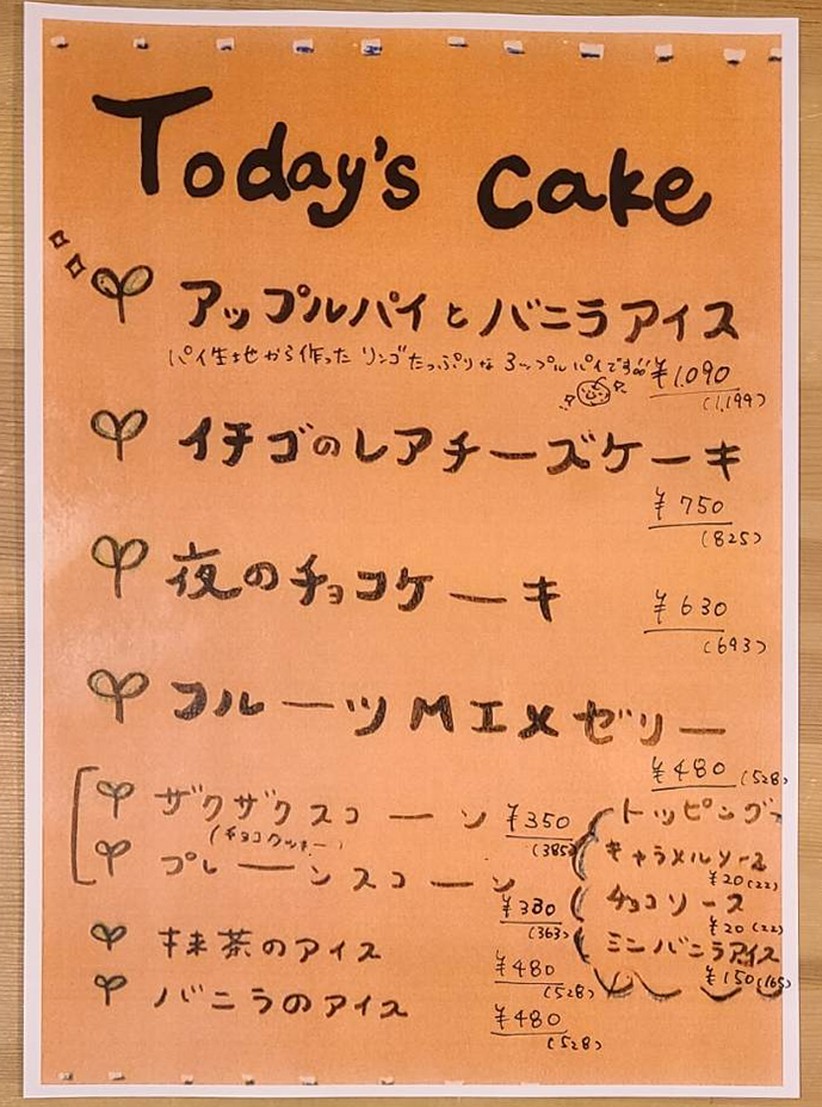 Today's cake
アップルパイとバニラアイス
パイ生地から作った リンゴたっぷりな アップルパイです!!
¥1,090
(1,199)
イチゴのレアチーズケーキ
¥750
(825)
夜のチョコケーキ
¥630
(693)
フルーツMIXゼリー
¥480 (528)
ザクザクスコーン ¥350
(チョコクッキー)
(385)
プレーンスコーン
¥330
(363)
抹茶のアイス
¥480
(528)
バニラのアイス
¥480
(528)
トッピング
キャラメルソース
¥20(22)
チョコソース
¥20(22)
ミニバニラアイス
¥150(165)